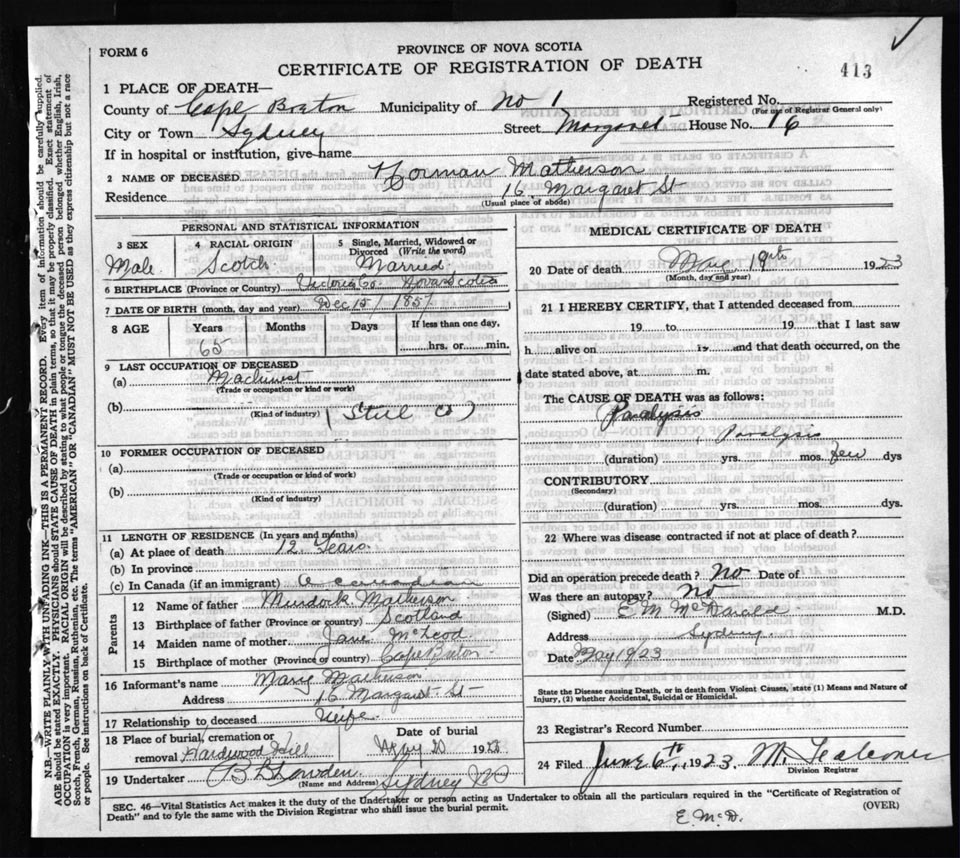 FORM 6
PROVINCE OF NOVA SCOTIA
CERTIFICATE OF REGISTRATION OF DEATH
413
1 PLACE OF DEATH—
County of Cape Breton Municipality of No 1 Registered No.
(For use of Registrar General only)
City or Town Sydney Street Margaret House No. 16
If in hospital or institution, give name
2 NAME OF DECEASED Norman Matheson
Residence 16 Margaret St
(Usual place of abode)
PERSONAL AND STATISTICAL INFORMATION
3 SEX 4 RACIAL ORIGIN 5 Single, Married, Widowed or Divorced (Write the word)
Male Scotch Married
6 BIRTHPLACE (Province or Country) Victoria Co. Nova Scotia
7 DATE OF BIRTH (month, day and year) Dec 15, 1857
8 AGE Years Months Days If less than one day,
65 hrs. or min.
9 LAST OCCUPATION OF DECEASED
(a) Machinist
(Trade or occupation or kind or work)
(b) (Steel Co)
(Kind of industry)
10 FORMER OCCUPATION OF DECEASED
(a)
(Trade or occupation or kind of work)
(b)
(Kind of industry)
11 LENGTH OF RESIDENCE (In years and months)
(a) At place of death 12 Years
(b) In province
(c) In Canada (if an immigrant) Canadian
Parents
12 Name of father Murdock Matheson
13 Birthplace of father (Province or country) Scotland
14 Maiden name of mother Jane McLeod
15 Birthplace of mother (Province or country) Cape Breton
16 Informant's name Mary Matheson
Address 16 Margaret St
17 Relationship to deceased Wife
18 Place of burial, cremation or removal Hardwood Hill Date of burial 192
19 Undertaker Sydney
(Name and Address)
MEDICAL CERTIFICATE OF DEATH
20 Date of death 19th 1923
(Month, day and year)
21 I HEREBY CERTIFY, that I attended deceased from
19 to 19 that I last saw
h alive on 19 and that death occurred, on the
date stated above, at m.
The CAUSE OF DEATH was as follows:
Paralysis
Paralysis
(duration) yrs. mos. few dys
CONTRIBUTORY
(Secondary)
(duration) yrs. mos. dys.
22 Where was disease contracted if not at place of death?
Did an operation precede death? No Date of
Was there an autopsy? No
(Signed) E M McDonald M.D.
Address Sydney
Date May 1923
State the Disease causing Death, or in death from Violent Causes, state (1) Means and Nature of
Injury, (2) whether Accidental, Suicidal or Homicidal.
23 Registrar's Record Number
24 Filed June 6th, 1923
Division Registrar
SEC. 46—Vital Statistics Act makes it the duty of the Undertaker or person acting as Undertaker to obtain all the particulars required in the "Certificate of Registration of
Death" and to fyle the same with the Division Registrar who shall issue the burial permit.
(OVER)
E. McD.
N.B.—WRITE PLAINLY WITH UNFADING INK—THIS IS A PERMANENT RECORD. Every item of information should be carefully supplied.
AGE should be stated EXACTLY. PHYSICIANS should STATE CAUSE OF DEATH in plain terms, so that it may be properly classified. Exact statement of
OCCUPATION is very important. RACIAL ORIGIN will be described by stating to what people or tongue the deceased person belonged whether English, Irish,
Scotch, French, German, Russian, Ruthenian, etc. The terms "AMERICAN" OR "CANADIAN" MUST NOT BE USED as they express citizenship but not a race
or people. See instructions on back of Certificate.